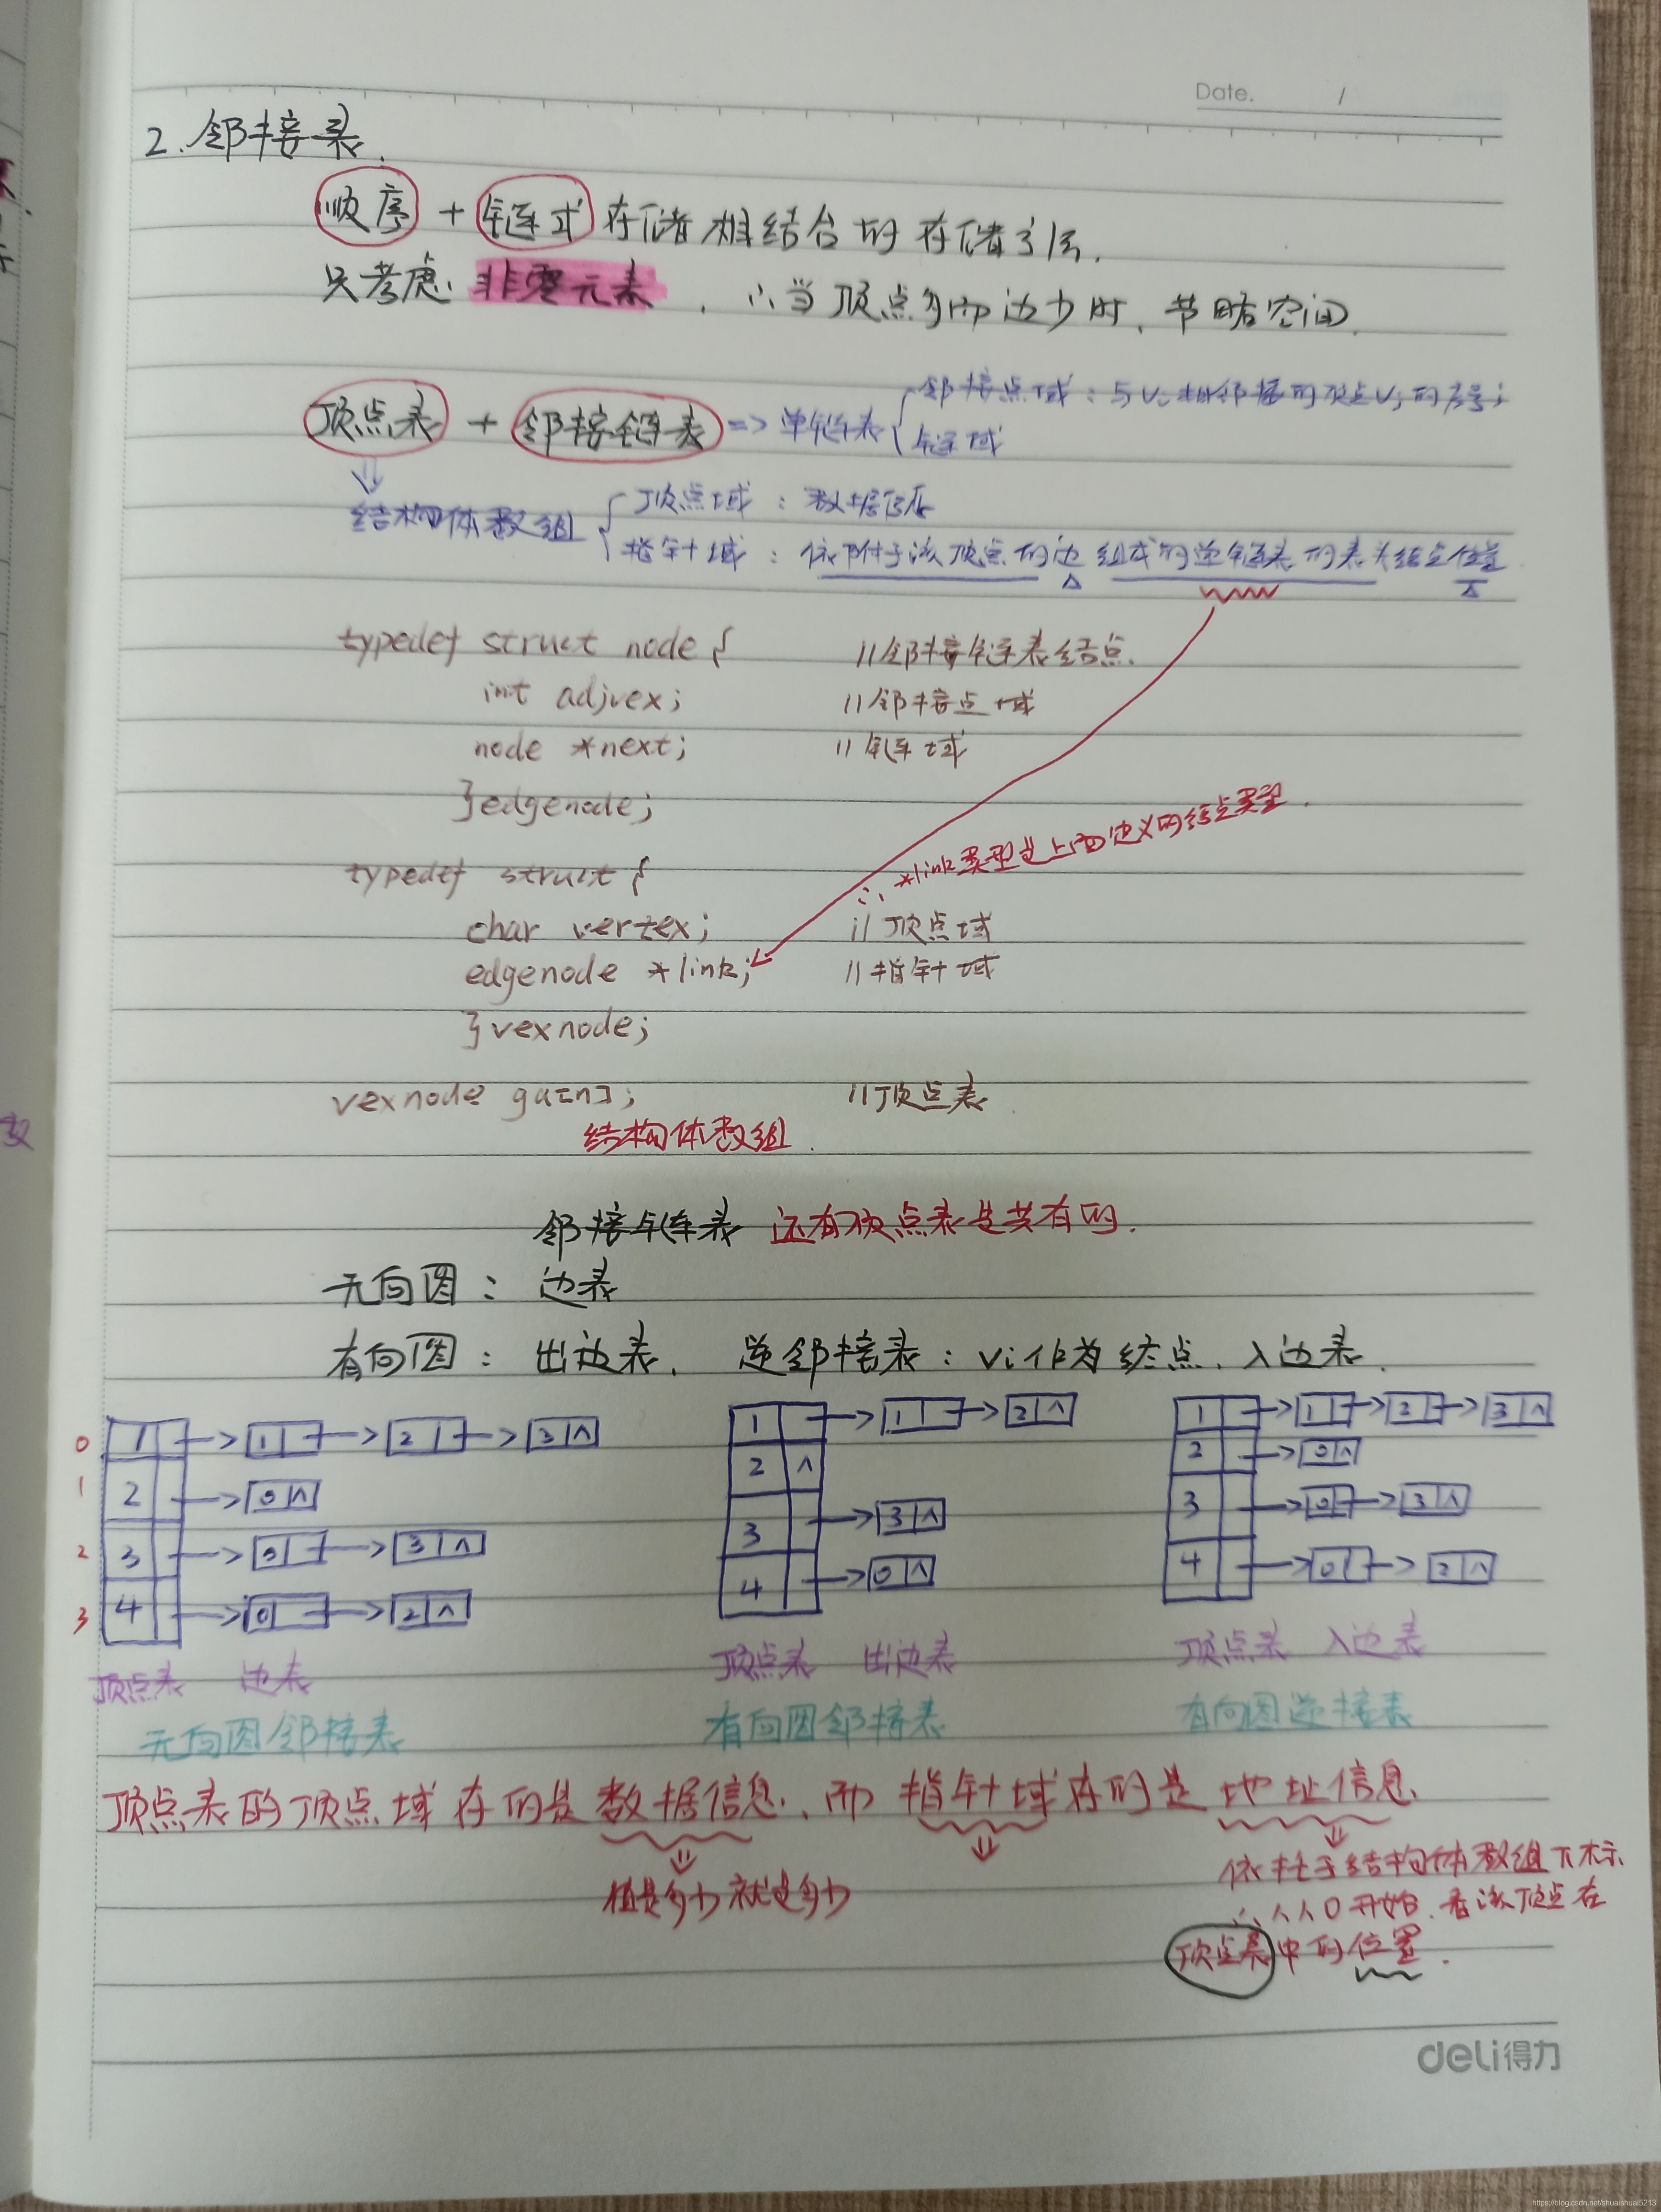 Date. /
2.邻接表.
顺序 + 链式 存储相结合的存储方法.
只考虑 非零元素 , ∴当顶点多而边少时, 节略空间.
顶点表 + 邻接链表 => 单链表 { 邻接点域:与Vi相邻接的顶点Vj的序号;
链域
结构体数组 { 顶点域 : 数据信息
指针域 : 依附于该顶点的边 组成的单链表的表头结点位置
typedef struct node { //邻接链表结点.
int adjvex; //邻接点域
node *next; //链域
}edgenode;
∴ *link类型是上面定义的结点类型.
typedef struct {
char vertex; //顶点域
edgenode *link; //指针域
}vexnode;
vexnode ga[n]; //顶点表
结构体数组.
邻接链表 还有顶点表是共有的.
无向图: 边表
有向图: 出边表. 逆邻接表: vi作为终点. 入边表.
0 1 → 1 → 2 → 3 ∧
1 2 → 0 ∧
2 3 → 0 → 3 ∧
3 4 → 0 → 2 ∧
顶点表 边表
无向图邻接表
1 → 1 → 2 ∧
2 ∧
3 → 3 ∧
4 → 0 ∧
顶点表 出边表
有向图邻接表
1 → 1 → 2 → 3 ∧
2 → 0 ∧
3 → 0 → 3 ∧
4 → 0 → 2 ∧
顶点表 入边表
有向图逆接表
顶点表的顶点域存的是数据信息, 而指针域存的是地址信息.
值是多少就是多少
依托于结构体数组下标
∴从0开始. 看该顶点在
顶点表中的位置.
deli得力
https://blog.csdn.net/shuaishuai5213